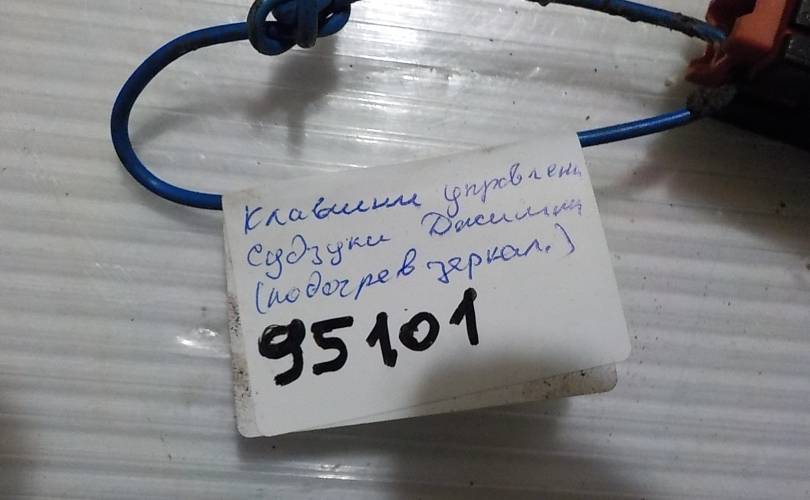 Клавиши управлени
Судзуки Джимни
(подогрев зеркал.)
95101